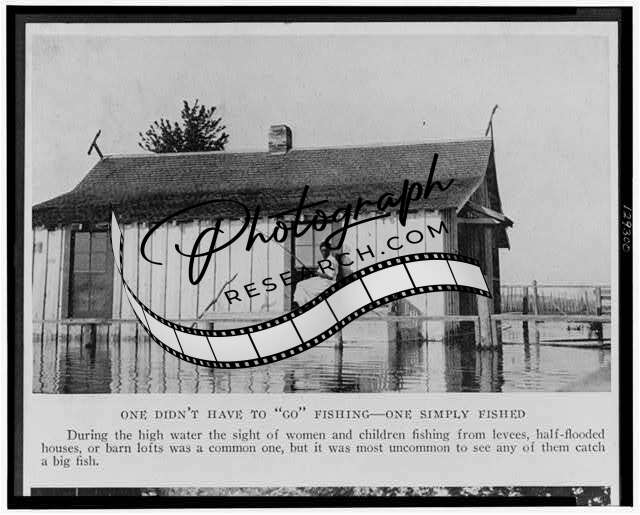 Photograph
RESEARCH.COM
129302
ONE DIDN'T HAVE TO "GO" FISHING—ONE SIMPLY FISHED
During the high water the sight of women and children fishing from levees, half-flooded
houses, or barn lofts was a common one, but it was most uncommon to see any of them catch
a big fish.